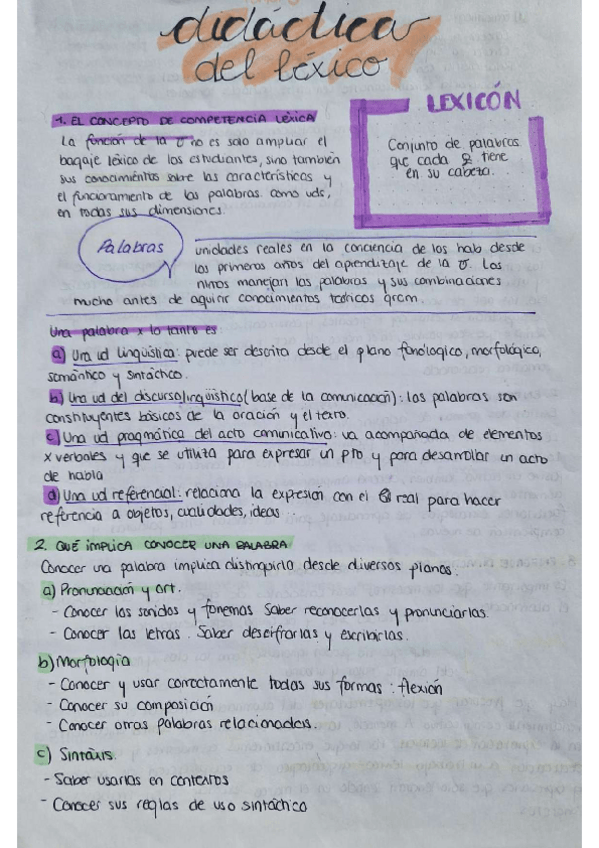 didáctica
del léxico
1. EL CONCEPTO DE COMPETENCIA LÉXICA
La función de la no es solo ampliar el
bagaje léxico de los estudiantes, sino también
sus conocimientos sobre las características y
el funcionamiento de las palabras como uds,
en todas sus dimensiones.
LEXICÓN
Conjunto de palabras
que cada tiene
en su cabeza.
Palabras
unidades reales en la conciencia de los hab desde
los primeros años del aprendizaje de la. Los
niños manejan las palabras y sus combinaciones
mucho antes de aquirir conocimientos teóricos gram.
Una palabra x lo tanto es
a) Una ud lingüística: puede ser descrita desde el plano fonologico, morfológico,
semántico y sintáctico.
b) Una ud del discurso lingüístico (base de la comunicación): las palabras son
constituyentes básicos de la oración y el texto.
c) Una ud pragmática del acto comunicativo: va acompañada de elementos
x verbales y que se utiliza para expresar un pto y para desarrollar un acto
de habla
d) Una ud referencial: relaciona la expresión con el real para hacer
referencia a objetos, cualidades, ideas...
2. QUÉ IMPLICA CONOCER UNA PALABRA
Conocer una palabra implica distinguirla desde diversos planos.
a) Pronunciación y art.
- Conocer los sonidos y fonemas. Saber reconocerlas y pronunciarlas.
- Conocer las letras. Saber descifrarlas y escribirlas.
b) Morfología
- Conocer y usar correctamente todas sus formas: flexión
- Conocer su composición
- Conocer otras palabras relacionadas.
c) Sintaxis.
- Saber usarlas en contextos
- Conocer sus reglas de uso sintáctico